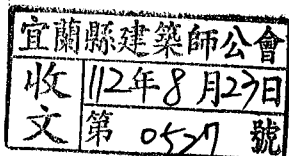 宜蘭縣建築師公會
收文
112年8月23日
第0527號